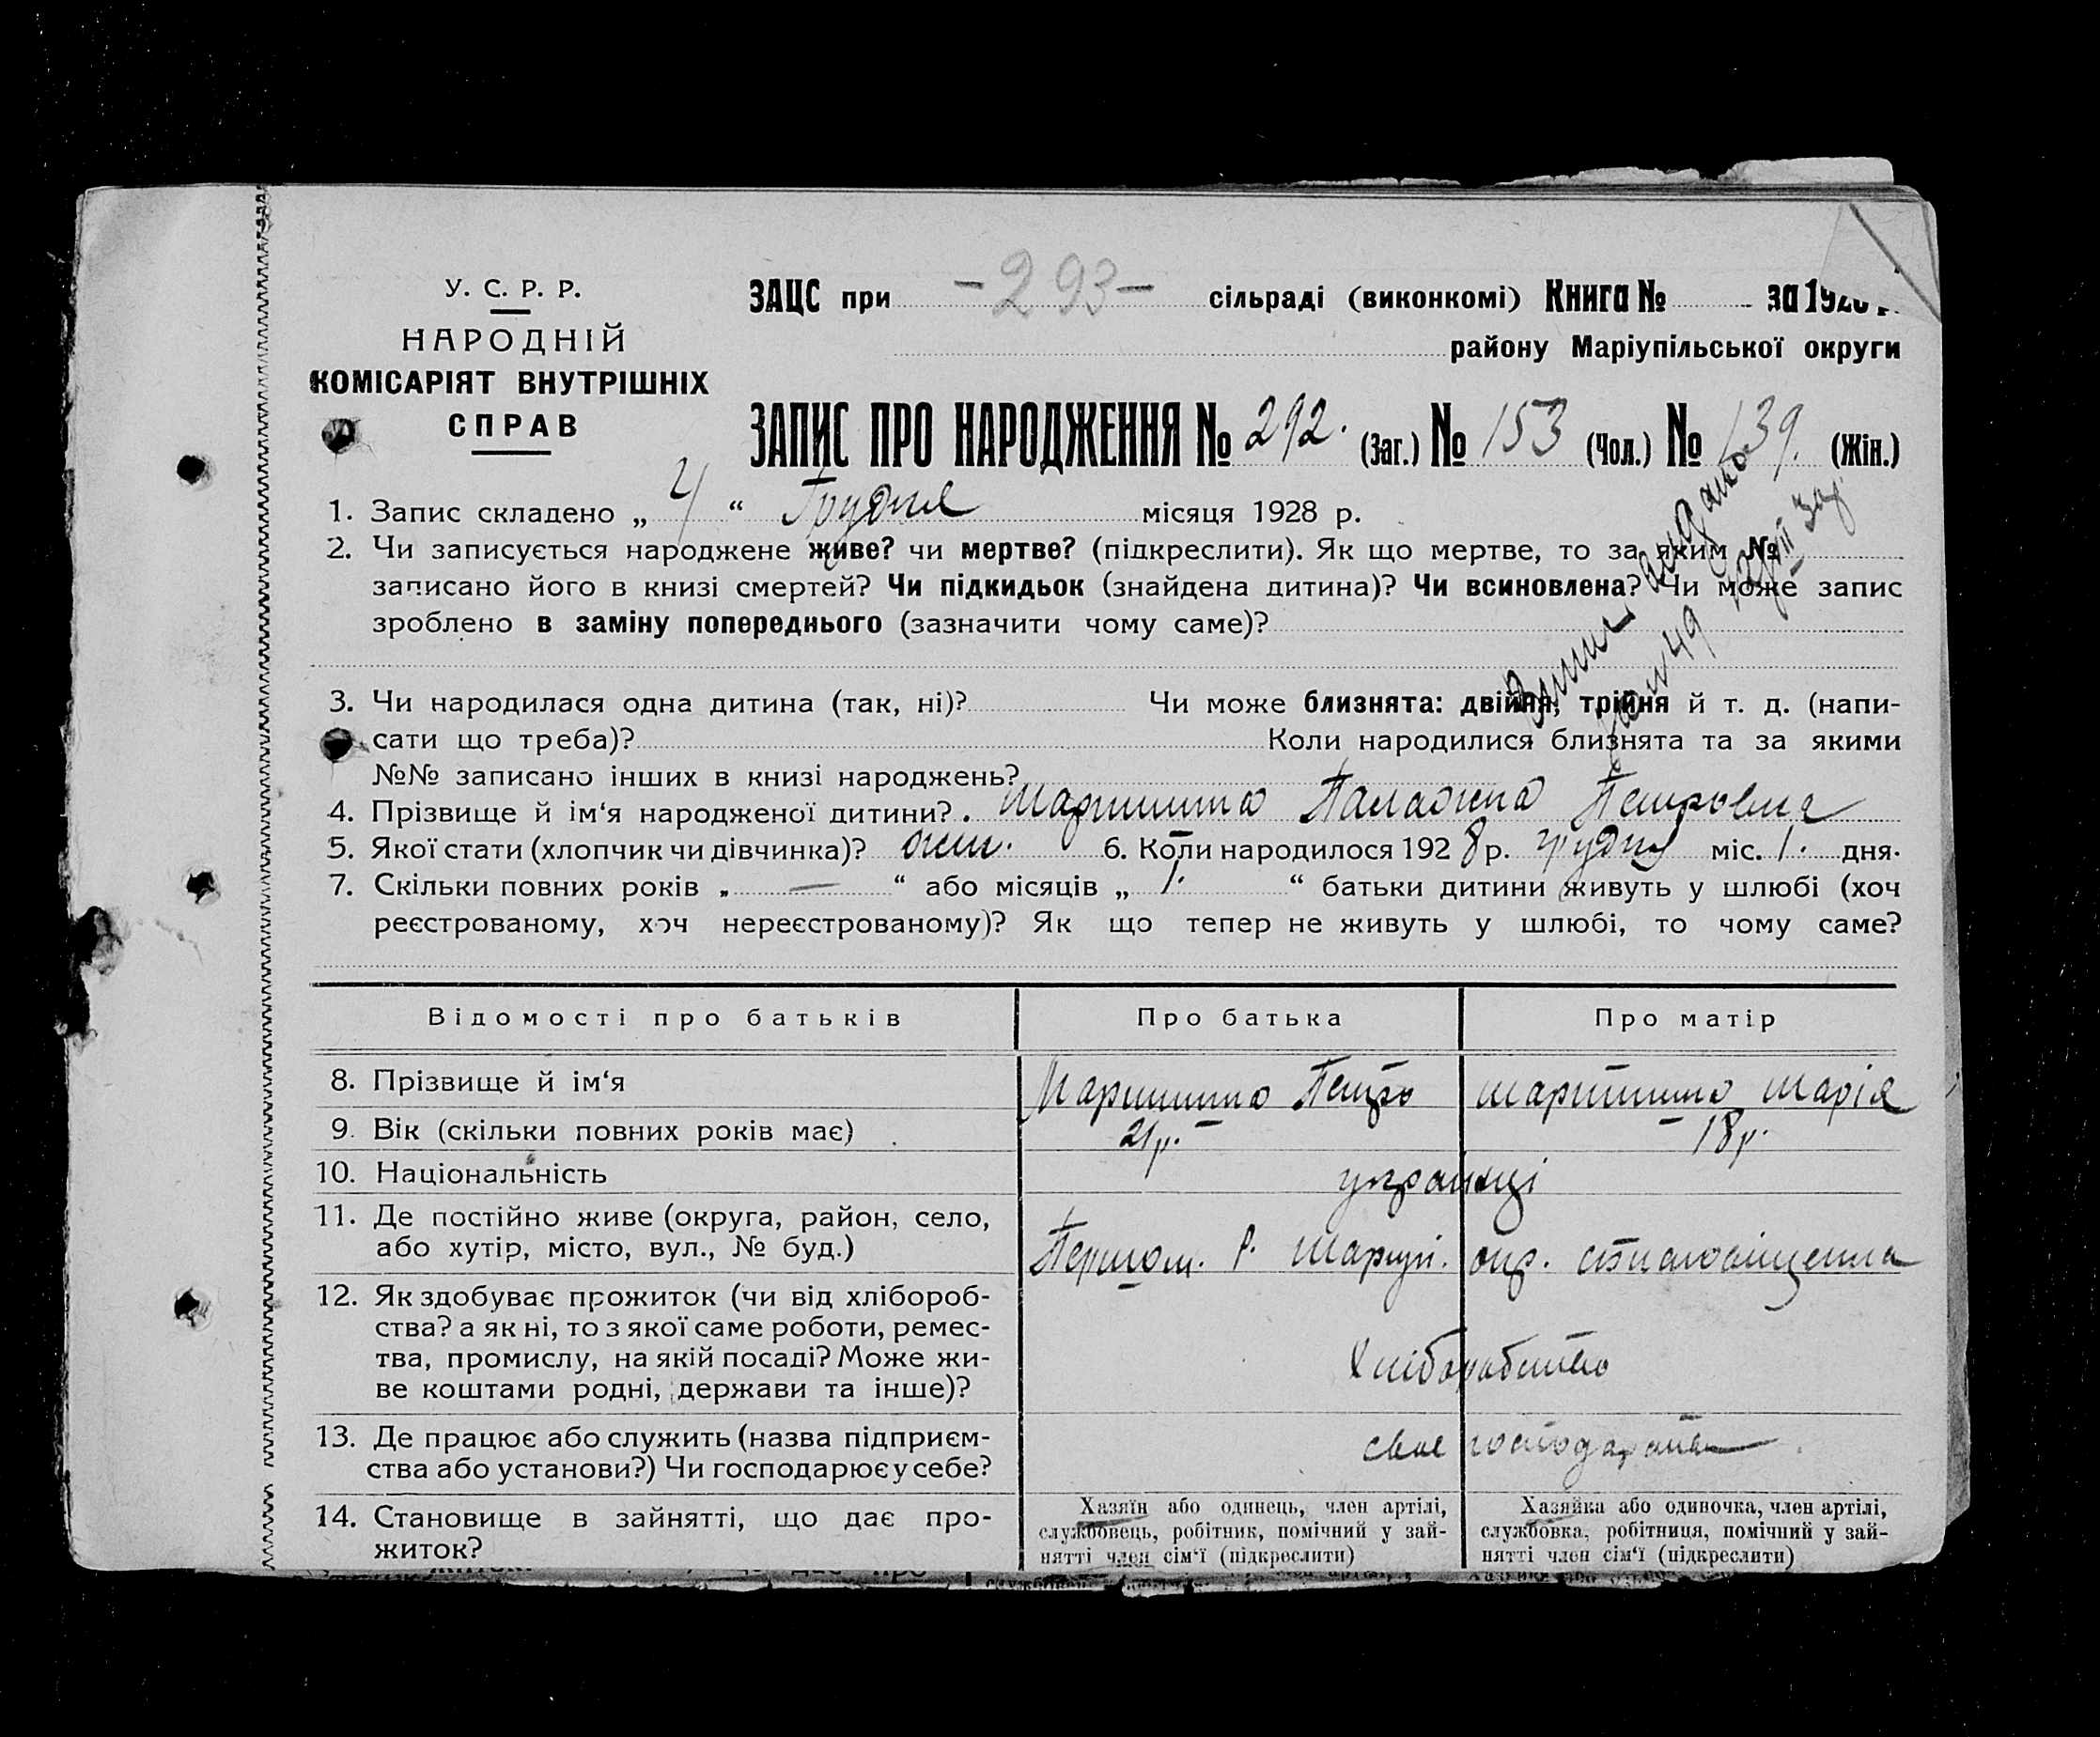 У. С. Р. Р.
НАРОДНІЙ
КОМІСАРІЯТ ВНУТРІШНІХ
СПРАВ
ЗАЦС при -293- сільраді (виконкомі) Книга № за 1928 р.
району Маріупільської округи
ЗАПИС ПРО НАРОДЖЕННЯ № 292. (Заг.) № 153 (Чол.) № 139. (Жін.)
1. Запис складено „ 4 “ Грудня місяця 1928 р.
2. Чи записується народжене живе? чи мертве? (підкреслити). Як що мертве, то за яким №
записано його в книзі смертей? Чи підкидьок (знайдена дитина)? Чи всиновлена? Чи може запис
зроблено в заміну попереднього (зазначити чому саме)?
3. Чи народилася одна дитина (так, ні)? Чи може близнята: двійня, трійня й т. д. (напи-
сати що треба)? Коли народилися близнята та за якими
№№ записано інших в книзі народжень?
4. Прізвище й ім‘я народженої дитини? Петровна
5. Якої стати (хлопчик чи дівчинка)? жін. 6. Коли народилося 1928 р. грудня міс. 1. дня.
7. Скільки повних років „ — “ або місяців „ 1. “ батьки дитини живуть у шлюбі (хоч
реєстрованому, хоч нереєстрованому)? Як що тепер не живуть у шлюбі, то чому саме?
Відомості про батьків Про батька Про матір
8. Прізвище й ім‘я Петро Марія
9. Вік (скільки повних років має) 21 р. 18 р.
10. Національність українці
11. Де постійно живе (округа, район, село,
або хутір, місто, вул., № буд.) Першом. р. Маріуп. окр.
12. Як здобуває прожиток (чи від хлібороб-
ства? а як ні, то з якої саме роботи, ремес-
тва, промислу, на якій посаді? Може жи-
ве коштами родні, держави та інше)? Хліборобство
13. Де працює або служить (назва підприєм-
ства або установи?) Чи господарює у себе? своє господарство
14. Становище в зайнятті, що дає про-
житок?
Хазяїн або одинець, член артілі,
службовець, робітник, помічний у зай-
нятті член сім‘ї (підкреслити)
Хазяйка або одиночка, член артілі,
службовка, робітниця, помічний у зай-
нятті член сім‘ї (підкреслити)